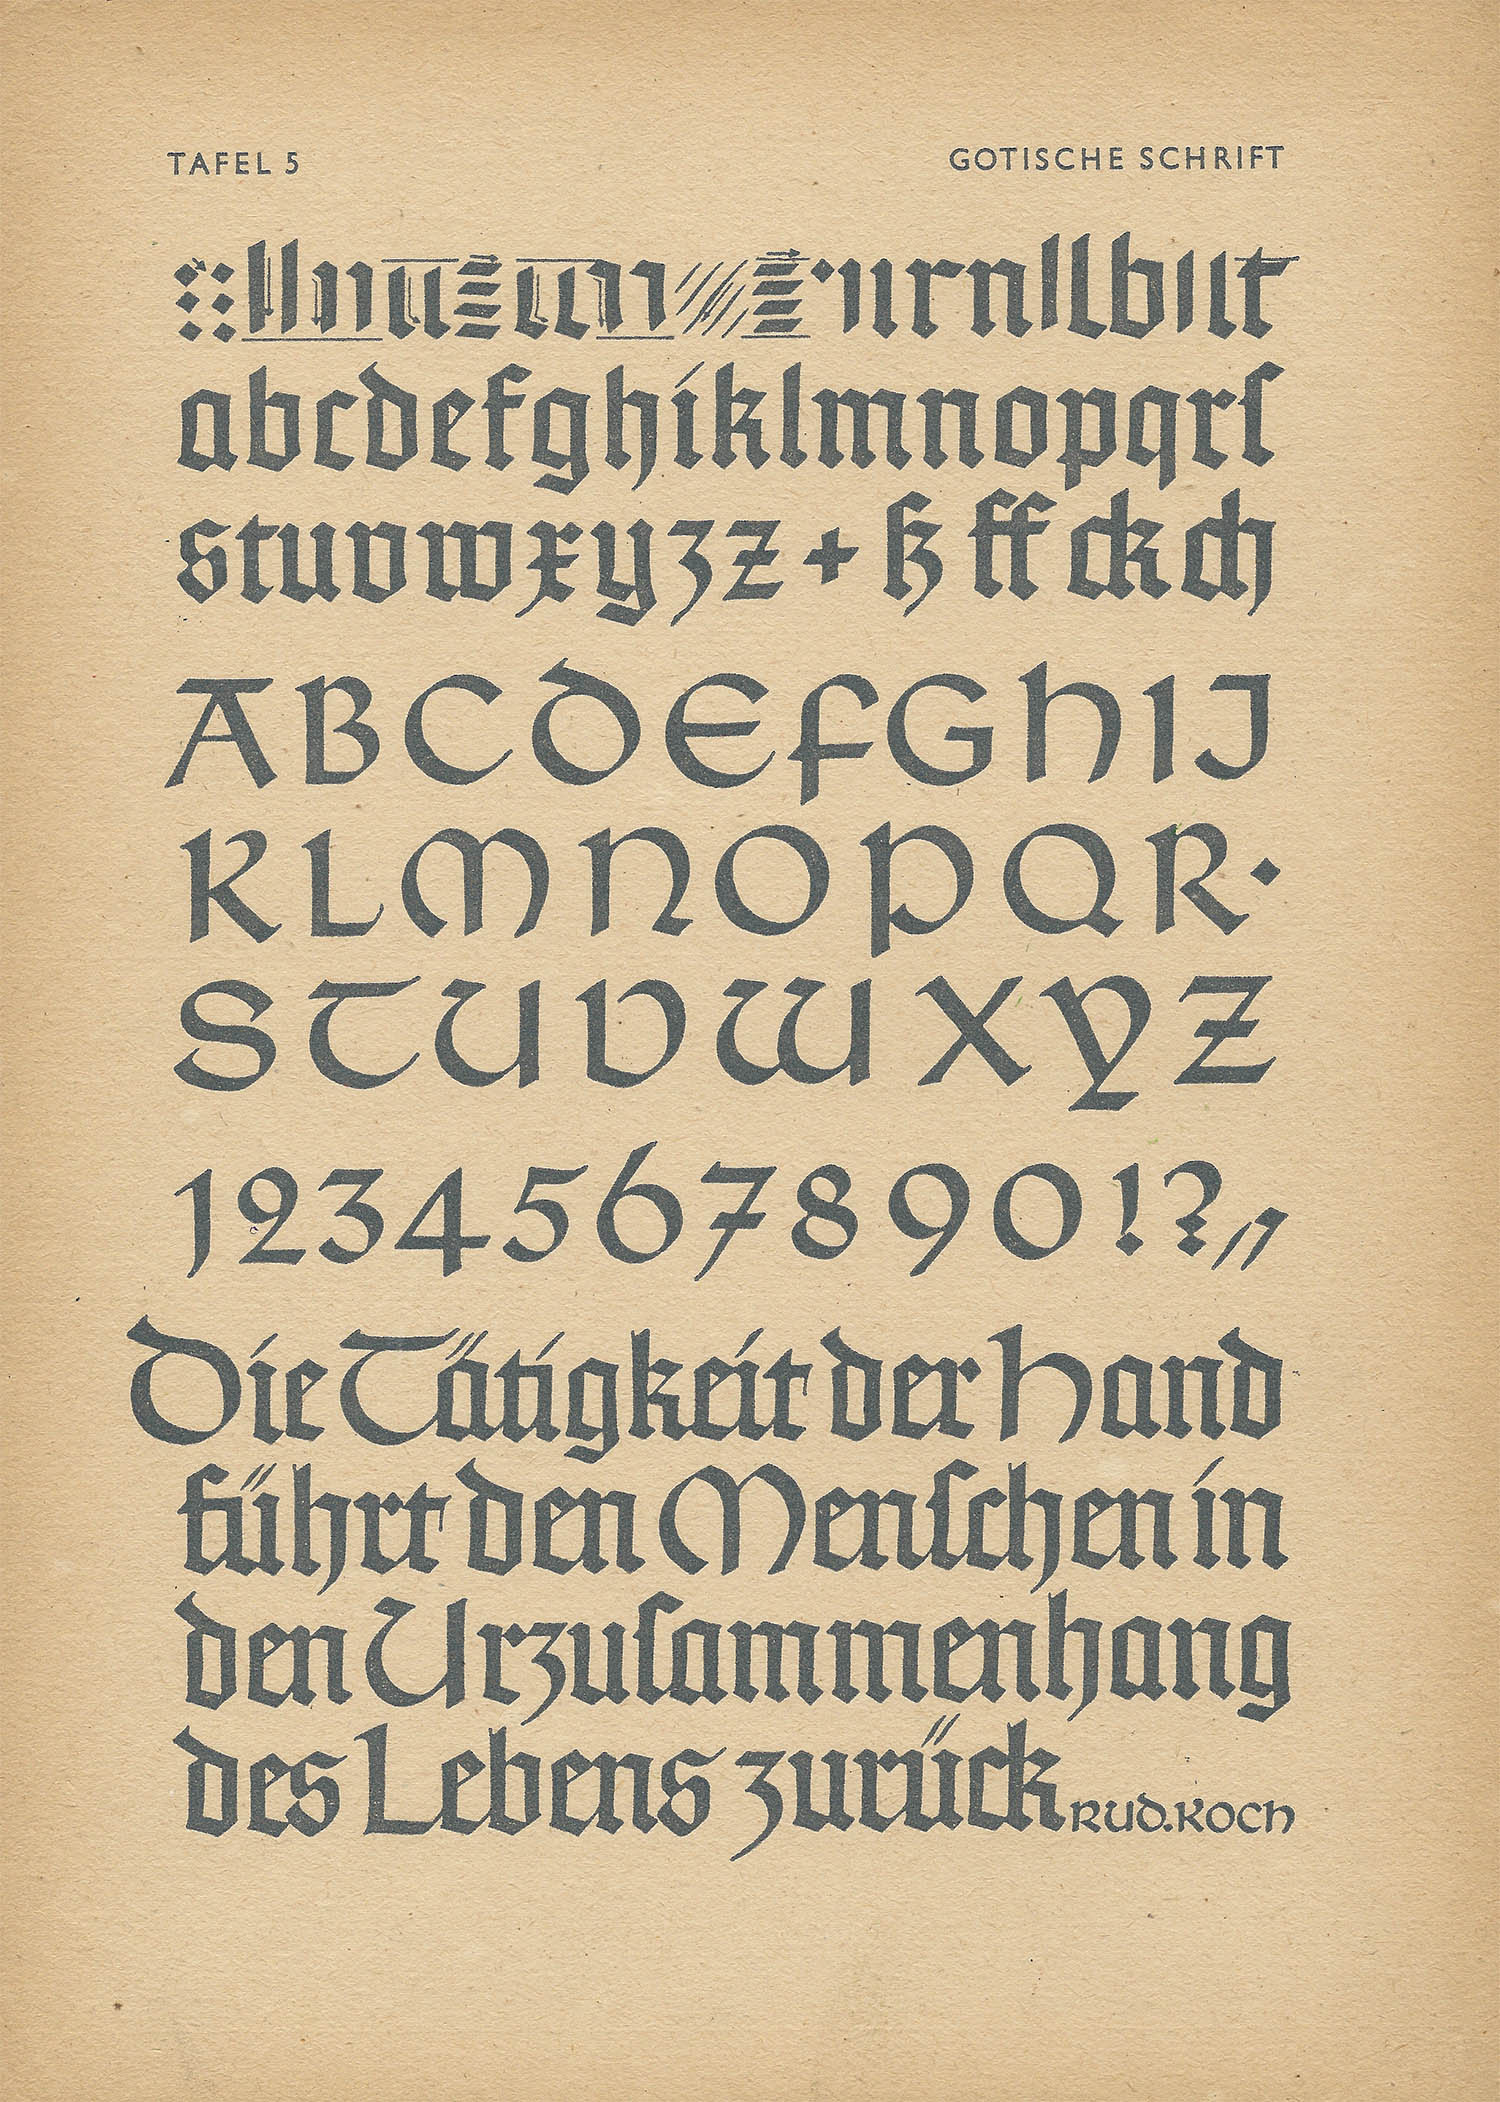 TAFEL 5
GOTISCHE SCHRIFT
urnllbıſt
abcdefghiklmnopqrſ
stuvwxyzz + ß ff ck ch
ABCDEFGHIJ
KLMNOPQR·
STUVWXYZ
1234567890!?„
Die Tätigkeit der Hand
führt den Menſchen in
den Urzuſammenhang
des Lebens zurück RUD. KOCH